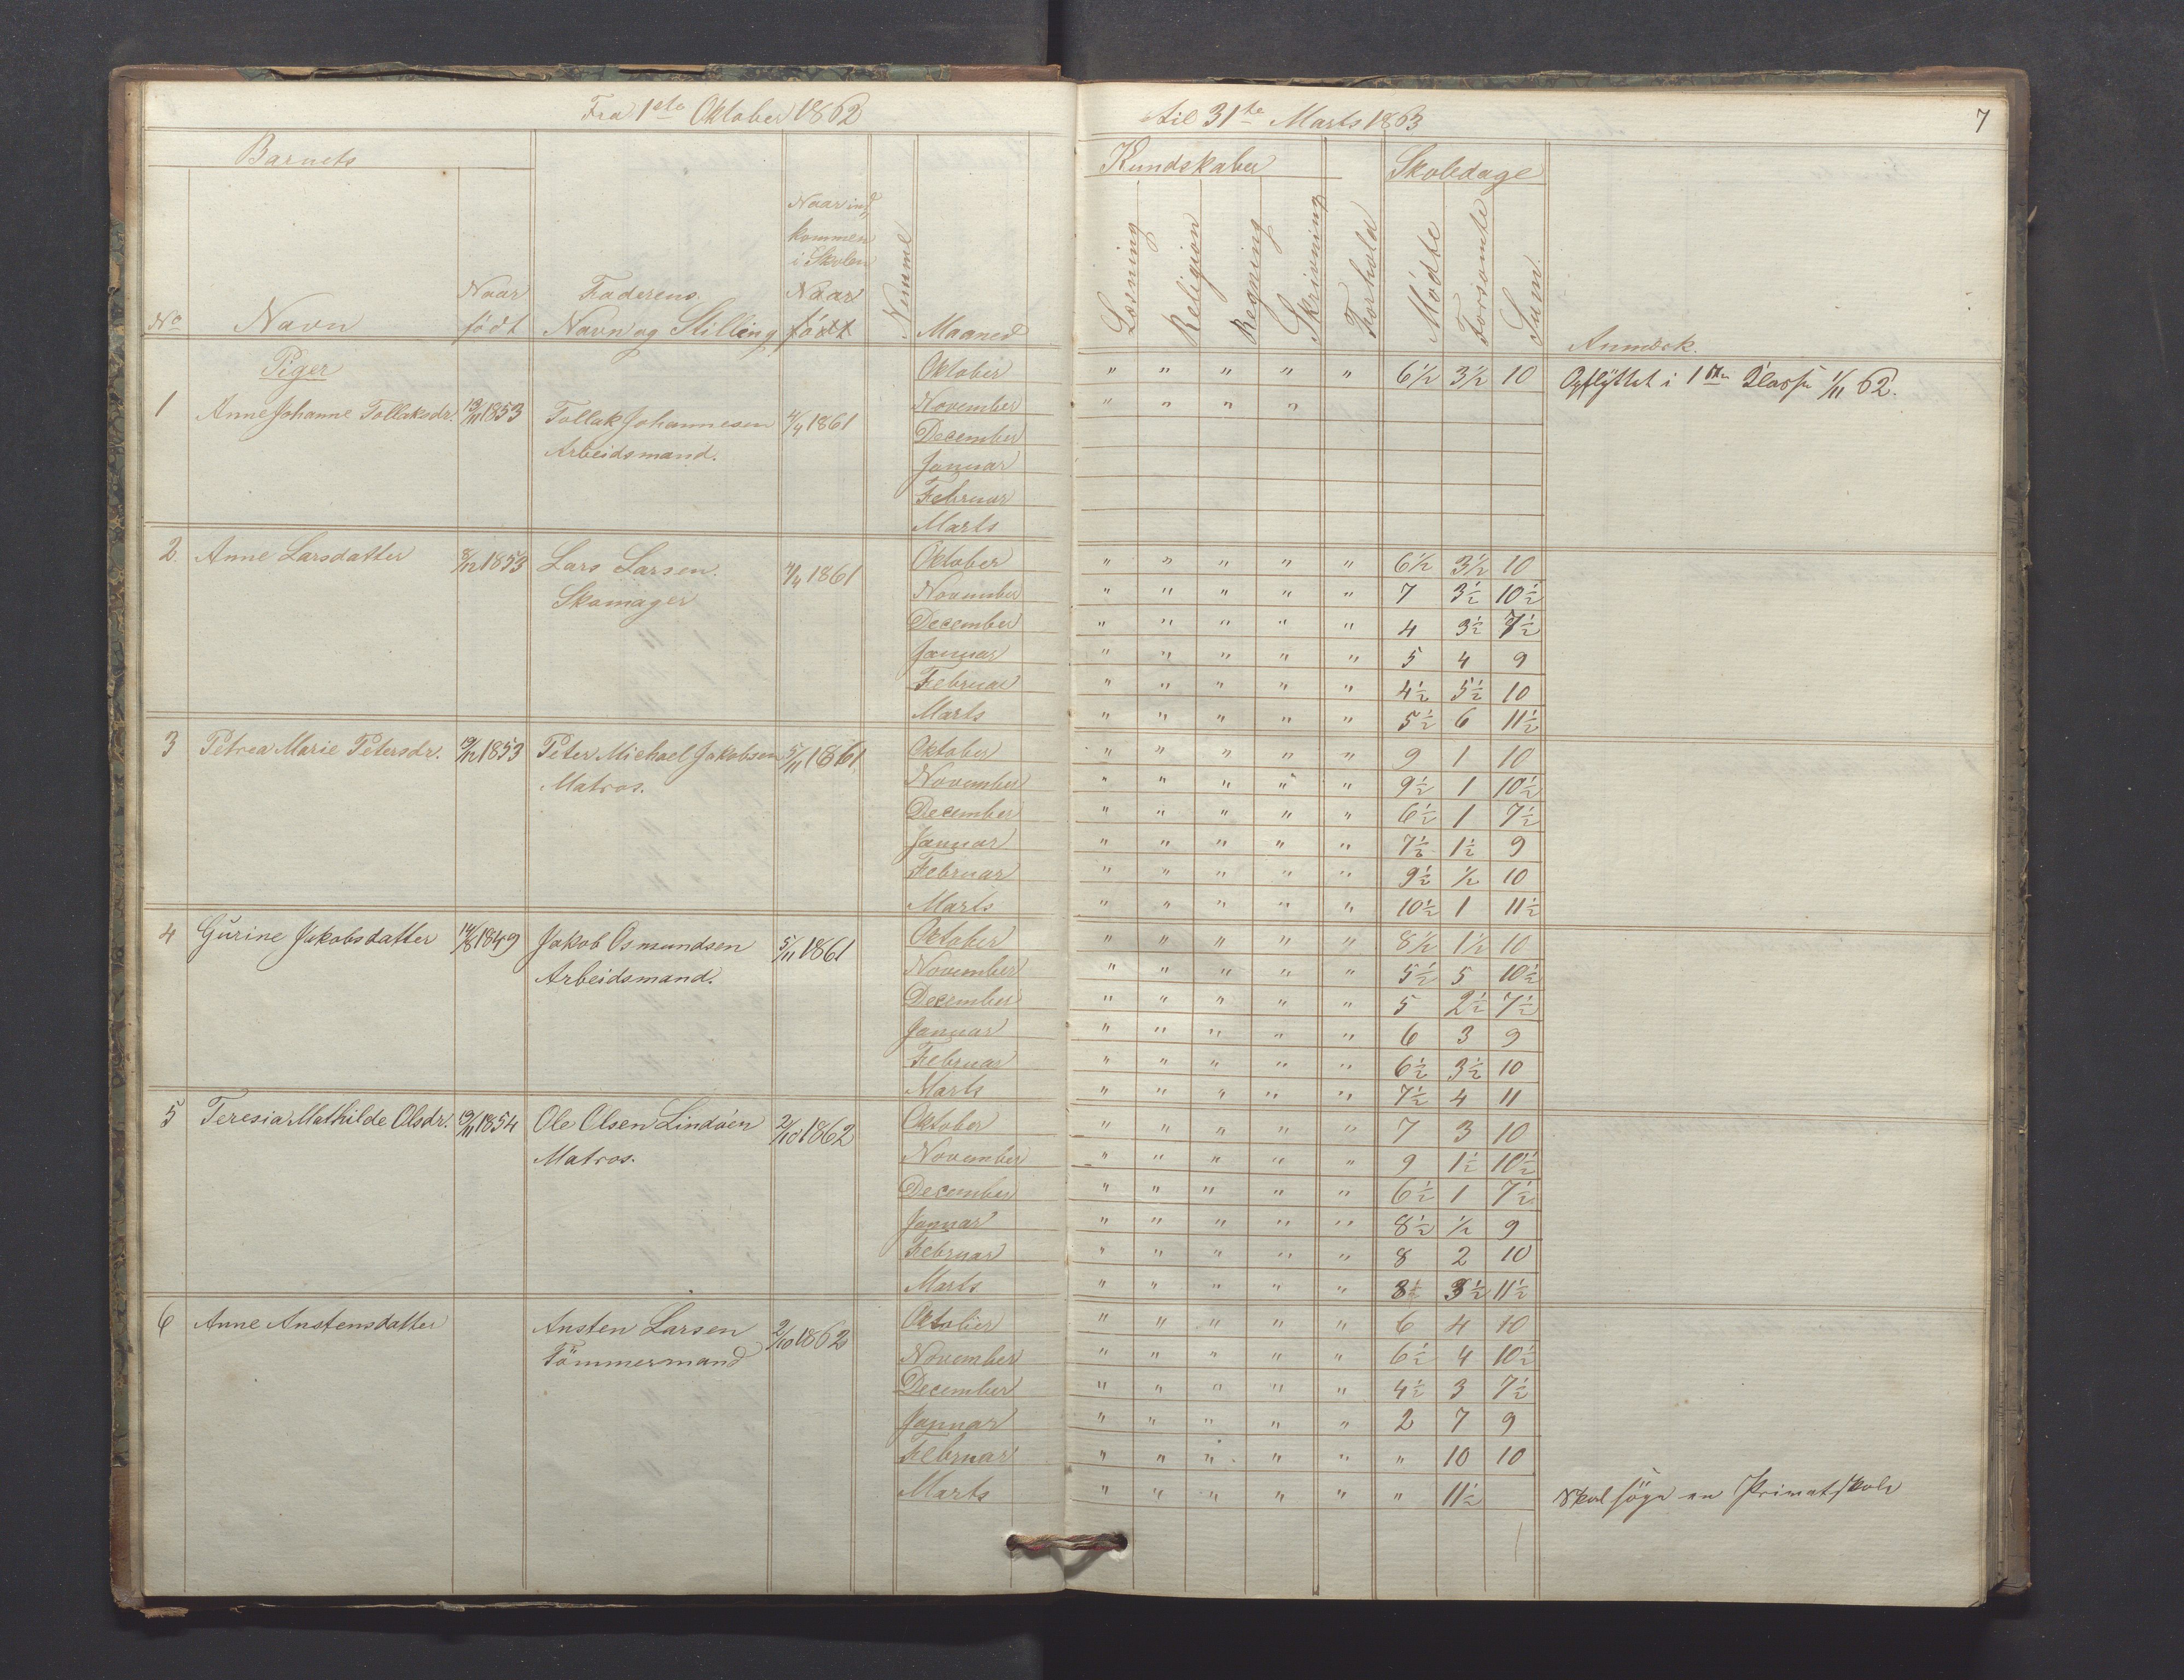 Fra 1ste Oktober 1862 til 31te Marts 1863 7
Barnets Kundskaber Skoledage
No Navn Naar födt Faderens Navn og Stilling Naar ind kommen i Skolen Naar födt Nummer Maaned Læsning Religion Regning Skrivning Forhold Mödte Forsömte Sum. Anmærk.
Piger
1 Anne Johanne Tollaksdr. 19/11 1853 Tollak Johannesen Arbeidsmand. 4/4 1861
Oktober " " " " " 6 1/2 3 1/2 10 Opflyttet i 1ste Classe 1/11 62.
November " " " "
December
Januar
Februar
Marts
2. Anne Larsdatter 8/12 1853 Lars Larsen. Skomager 4/4 1861
Oktober " " " " " 6 1/2 3 1/2 10
November " " " " " 7 3 1/2 10 1/2
December " " " " " 4 3 1/2 7 1/2
Januar " " " " " 5 4 9
Februar " " " " " 4 1/2 5 1/2 10
Marts " " " " " 5 1/2 6 11 1/2
3 Petrea Marie Petersdr. 19/12 1853 Peter Michael Jakobsen Matros. 5/11 1861.
Oktober " " " " " 9 1 10
November " " " " " 9 1/2 1 10 1/2
December " " " " " 6 1/2 1 7 1/2
Januar " " " " " 7 1/2 1 1/2 9
Februar " " " " " 9 1/2 1/2 10
Marts " " " " " 10 1/2 1 11 1/2
4 Gurine Jakobsdatter 14/8 1849 Jakob Osmundsen Arbeidsmand. 5/11 1861
Oktober " " " " " 8 1/2 1 1/2 10
November " " " " " 5 1/2 5 10 1/2
December " " " " " 5 2 1/2 7 1/2
Januar " " " " " 6 3 9
Februar " " " " " 6 1/2 3 1/2 10
Marts " " " " " 7 1/2 4 11
5 Teresia Mathilde Olsdr. 19/11 1854 Ole Olsen Lindöen Matros. 2/10 1862
Oktober " " " " " 7 3 10
November " " " " " 9 1 1/2 10 1/2
December " " " " " 6 1/2 1 7 1/2
Januar " " " " " 8 1/2 1/2 9
Februar " " " " " 8 2 10
Marts " " " " " 8 3 1/2 11 1/2
6 Anne Anstensdatter Ansten Larsen Tömmermand 2/10 1862
Oktober " " " " " 6 4 10
November " " " " " 6 1/2 4 10 1/2
December " " " " " 4 1/2 3 7 1/2
Januar " " " " " 2 7 9
Februar " " " " " " 10 10
Marts " " " " " " 11 1/2 Skal söge en Privatskole